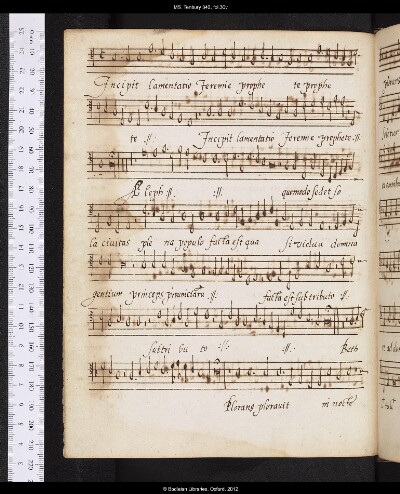 MS. Tenbury 340, fol.30v
Incipit lamentatio Jeremie prophe te prophe
te :||: Incipit lamentatio Jeremie prophete :||:
Aleph :||: :||: quomodo sedet so
la civitas ple na populo facta est qua si vidua domina
gentium princeps provinciarū :||: facta est sub tributo :||:
sub tri bu to :||: :||: Beth
Plorans ploravit in nocte
© Bodleian Libraries, Oxford, 2012